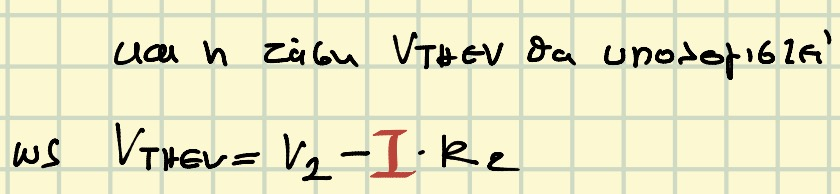 και η τάση VTHEV θα υπολογιστεί
ως VTHEV = V2 - I · R2